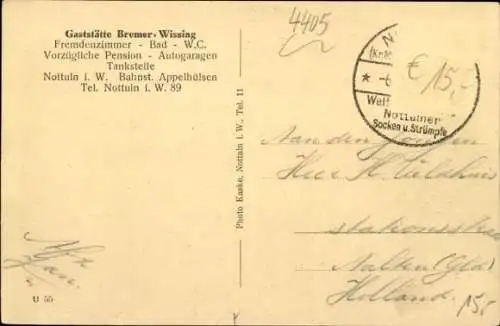 Gaststätte Bremer-Wissing
Fremdenzimmer - Bad - W.C.
Vorzügliche Pension - Autogaragen
Tankstelle
Nottuln i. W. Bahnst. Appelhülsen
Tel. Nottuln i. W. 89
U 55
Photo Kaske, Nottuln i. W., Tel. 11
4405
€ 15,-
Nottulner
Socken u. Strümpfe
Aan den
Heer H.
Aalten (Gld)
Holland.
15,-